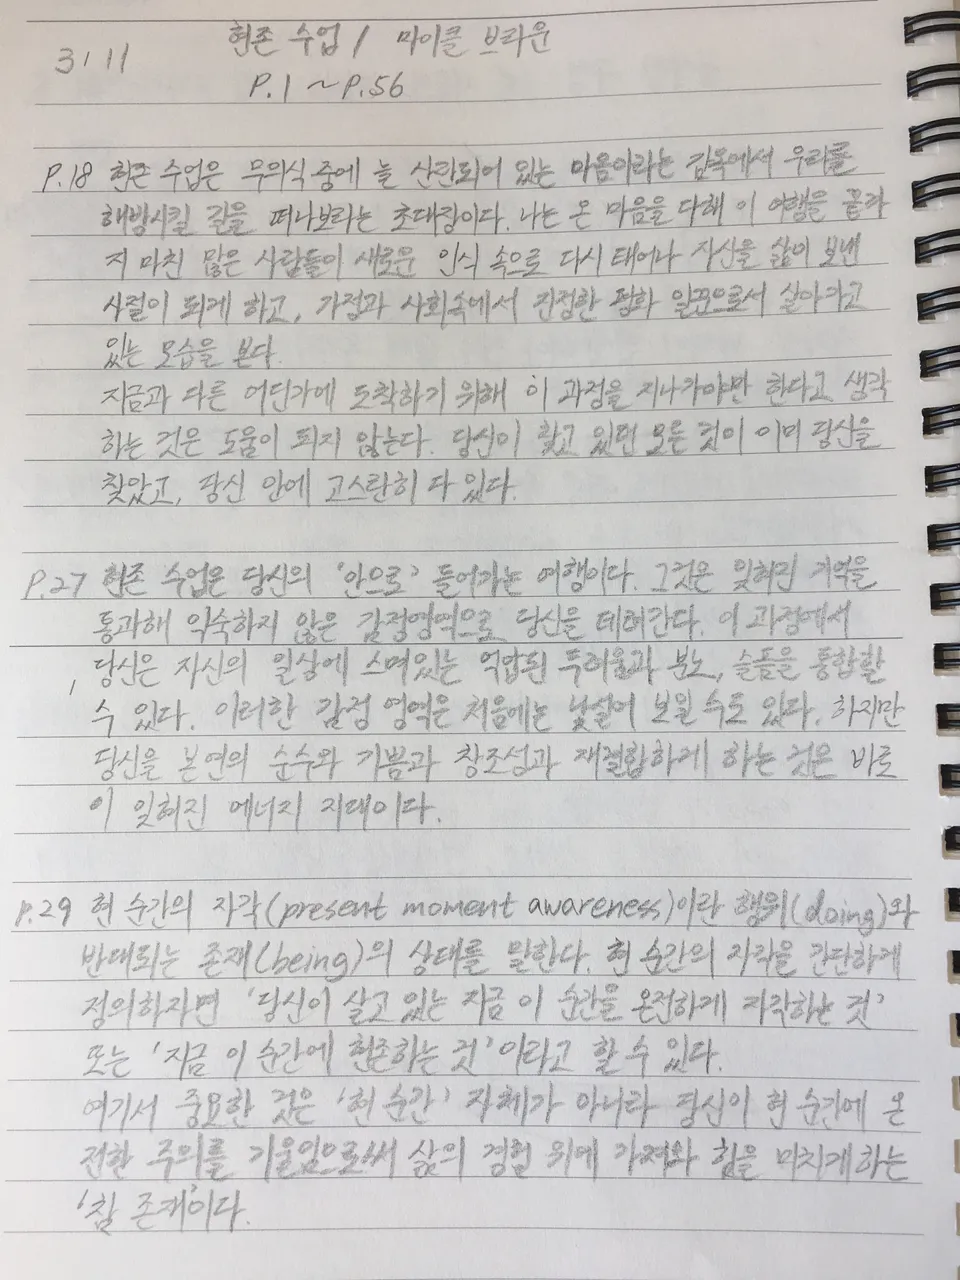 3/11 현존 수업 / 마이클 브라운
P.1 ~ P.56
P.18 현존 수업은 무의식중에 늘 산란되어 있는 마음이라는 감옥에서 우리를
해방시킬 길을 떠나보라는 초대장이다. 나는 온 마음을 다해 이 여행을 끝까
지 마친 많은 사람들이 새로운 인식 속으로 다시 태어나 자신을 삶이 보낸
사절이 되게 하고, 가정과 사회속에서 진정한 평화 일꾼으로서 살아가고
있는 모습을 본다.
지금과 다른 어딘가에 도착하기 위해 이 과정을 지나가야만 한다고 생각
하는 것은 도움이 되지 않는다. 당신이 찾고 있던 모든 것이 이미 당신을
찾았고, 당신 안에 고스란히 다 있다.
P.27 현존 수업은 당신의 '안으로' 들어가는 여행이다. 그것은 잊혀진 기억을
통과해 익숙하지 않은 감정영역으로 당신을 데려간다. 이 과정에서
당신은 자신의 일상에 스며있는 억압된 두려움과 분노, 슬픔을 통합할
수 있다. 이러한 감정 영역은 처음에는 낯설어 보일 수도 있다. 하지만
당신을 본연의 순수와 기쁨과 창조성과 재결합하게 하는 것은 바로
이 잊혀진 에너지 지대이다.
P.29 현 순간의 자각(present moment awareness)이란 행위(doing)와
반대되는 존재(being)의 상태를 말한다. 현 순간의 자각을 간단하게
정의하자면 '당신이 살고 있는 지금 이 순간을 온전하게 자각하는 것'
또는 '지금 이 순간에 현존하는 것'이라고 할 수 있다.
여기서 중요한 것은 '현 순간' 자체가 아니라 당신이 현 순간에 온
전한 주의를 기울임으로써 삶의 경험 위에 가져와 힘을 미치게 하는
'참 존재'이다.